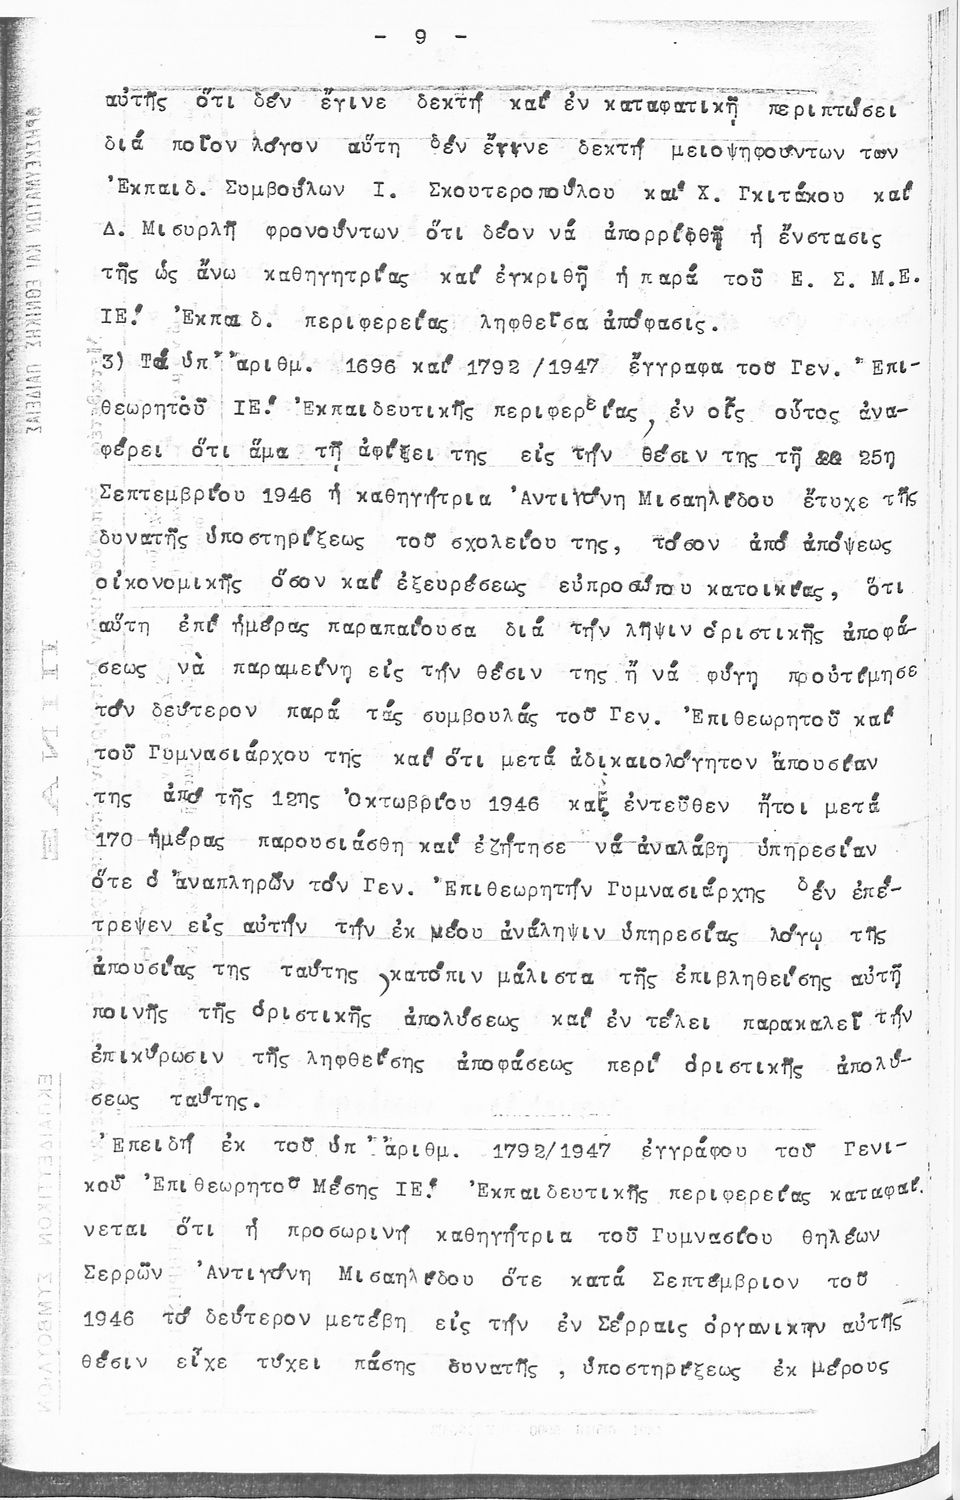 - 9 -
αὐτῆς ὅτι δέν ἔγινε δεκτή καί ἐν καταφατικῇ περιπτώσει
διά ποῖον λόγον αὕτη δέν ἔγινε δεκτή μειοψηφούντων των
Ἐκπαιδ. Συμβούλων Ι. Σκουτεροπούλου καί Χ. Γκιτάκου καί
Δ. Μισυρλῆ φρονούντων ὅτι δέον νά ἀπορριφθῇ ἡ ἔνστασις
τῆς ὡς ἄνω καθηγητρίας καί ἐγκριθῇ ἡ παρά τοῦ Ε. Σ. Μ.Ε.
ΙΕ.' Ἐκπαιδ. περιφερείας ληφθεῖσα ἀπόφασις.
3) Τά ὑπ' ἀριθμ. 1696 καί 1792 /1947 ἔγγραφα τοῦ Γεν. Ἐπι-
θεωρητοῦ ΙΕ.' Ἐκπαιδευτικῆς περιφερείας, ἐν οἷς οὗτος ἀνα-
φέρει ὅτι ἅμα τῇ ἀφίξει της εἰς τήν θέσιν της τῇ 25η
Σεπτεμβρίου 1946 ἡ καθηγήτρια Ἀντιγόνη Μισαηλίδου ἔτυχε τῆς
δυνατῆς ὑποστηρίξεως τοῦ σχολείου της, τόσον ἀπό ἀπόψεως
οἰκονομικῆς ὅσον καί ἐξευρέσεως εὐπροσώπου κατοικίας, ὅτι
αὕτη ἐπί ἡμέρας παραπαίουσα διά τήν λῆψιν ὁριστικῆς ἀποφά-
σεως νὰ παραμείνῃ εἰς τήν θέσιν της ἤ νά φύγῃ προὐτίμησε
τόν δεύτερον παρά τάς συμβουλάς τοῦ Γεν. Ἐπιθεωρητοῦ καί
τοῦ Γυμνασιάρχου τῆς καί ὅτι μετά ἀδικαιολόγητον ἀπουσίαν
της ἀπό τῆς 12ης Ὀκτωβρίου 1946 καί ἐντεῦθεν ἤτοι μετά
170 ἡμέρας παρουσιάσθη καί ἐζήτησε νά ἀναλάβῃ ὑπηρεσίαν
ὅτε ὁ ἀναπληρῶν τόν Γεν. Ἐπιθεωρητήν Γυμνασιάρχης δέν ἐπέ-
τρεψεν εἰς αὐτήν τήν ἐκ μέου ἀνάληψιν ὑπηρεσίας λόγῳ τῆς
ἀπουσίας της ταύτης ,κατόπιν μάλιστα τῆς ἐπιβληθείσης αὐτῇ
ποινῆς τῆς ὁριστικῆς ἀπολύσεως καί ἐν τέλει παρακαλεῖ τήν
ἐπικύρωσιν τῆς ληφθείσης ἀποφάσεως περί ὁριστικῆς ἀπολύ-
σεως ταύτης.
Ἐπειδή ἐκ τοῦ ὑπ' ἀριθμ. 1792/1947 ἐγγράφου τοῦ Γενι-
κοῦ Ἐπιθεωρητοῦ Μέσης ΙΕ.' Ἐκπαιδευτικῆς περιφερείας καταφαί.
νεται ὅτι ἡ προσωρινή καθηγήτρια τοῦ Γυμνασίου θηλέων
Σερρῶν Ἀντιγόνη Μισαηλίδου ὅτε κατά Σεπτέμβριον τοῦ
1946 τό δεύτερον μετέβη εἰς τήν ἐν Σέρραις ὀργανικήν αὐτῆς
θέσιν εἶχε τύχει πάσης δυνατῆς , ὑποστηρίξεως ἐκ μέρους